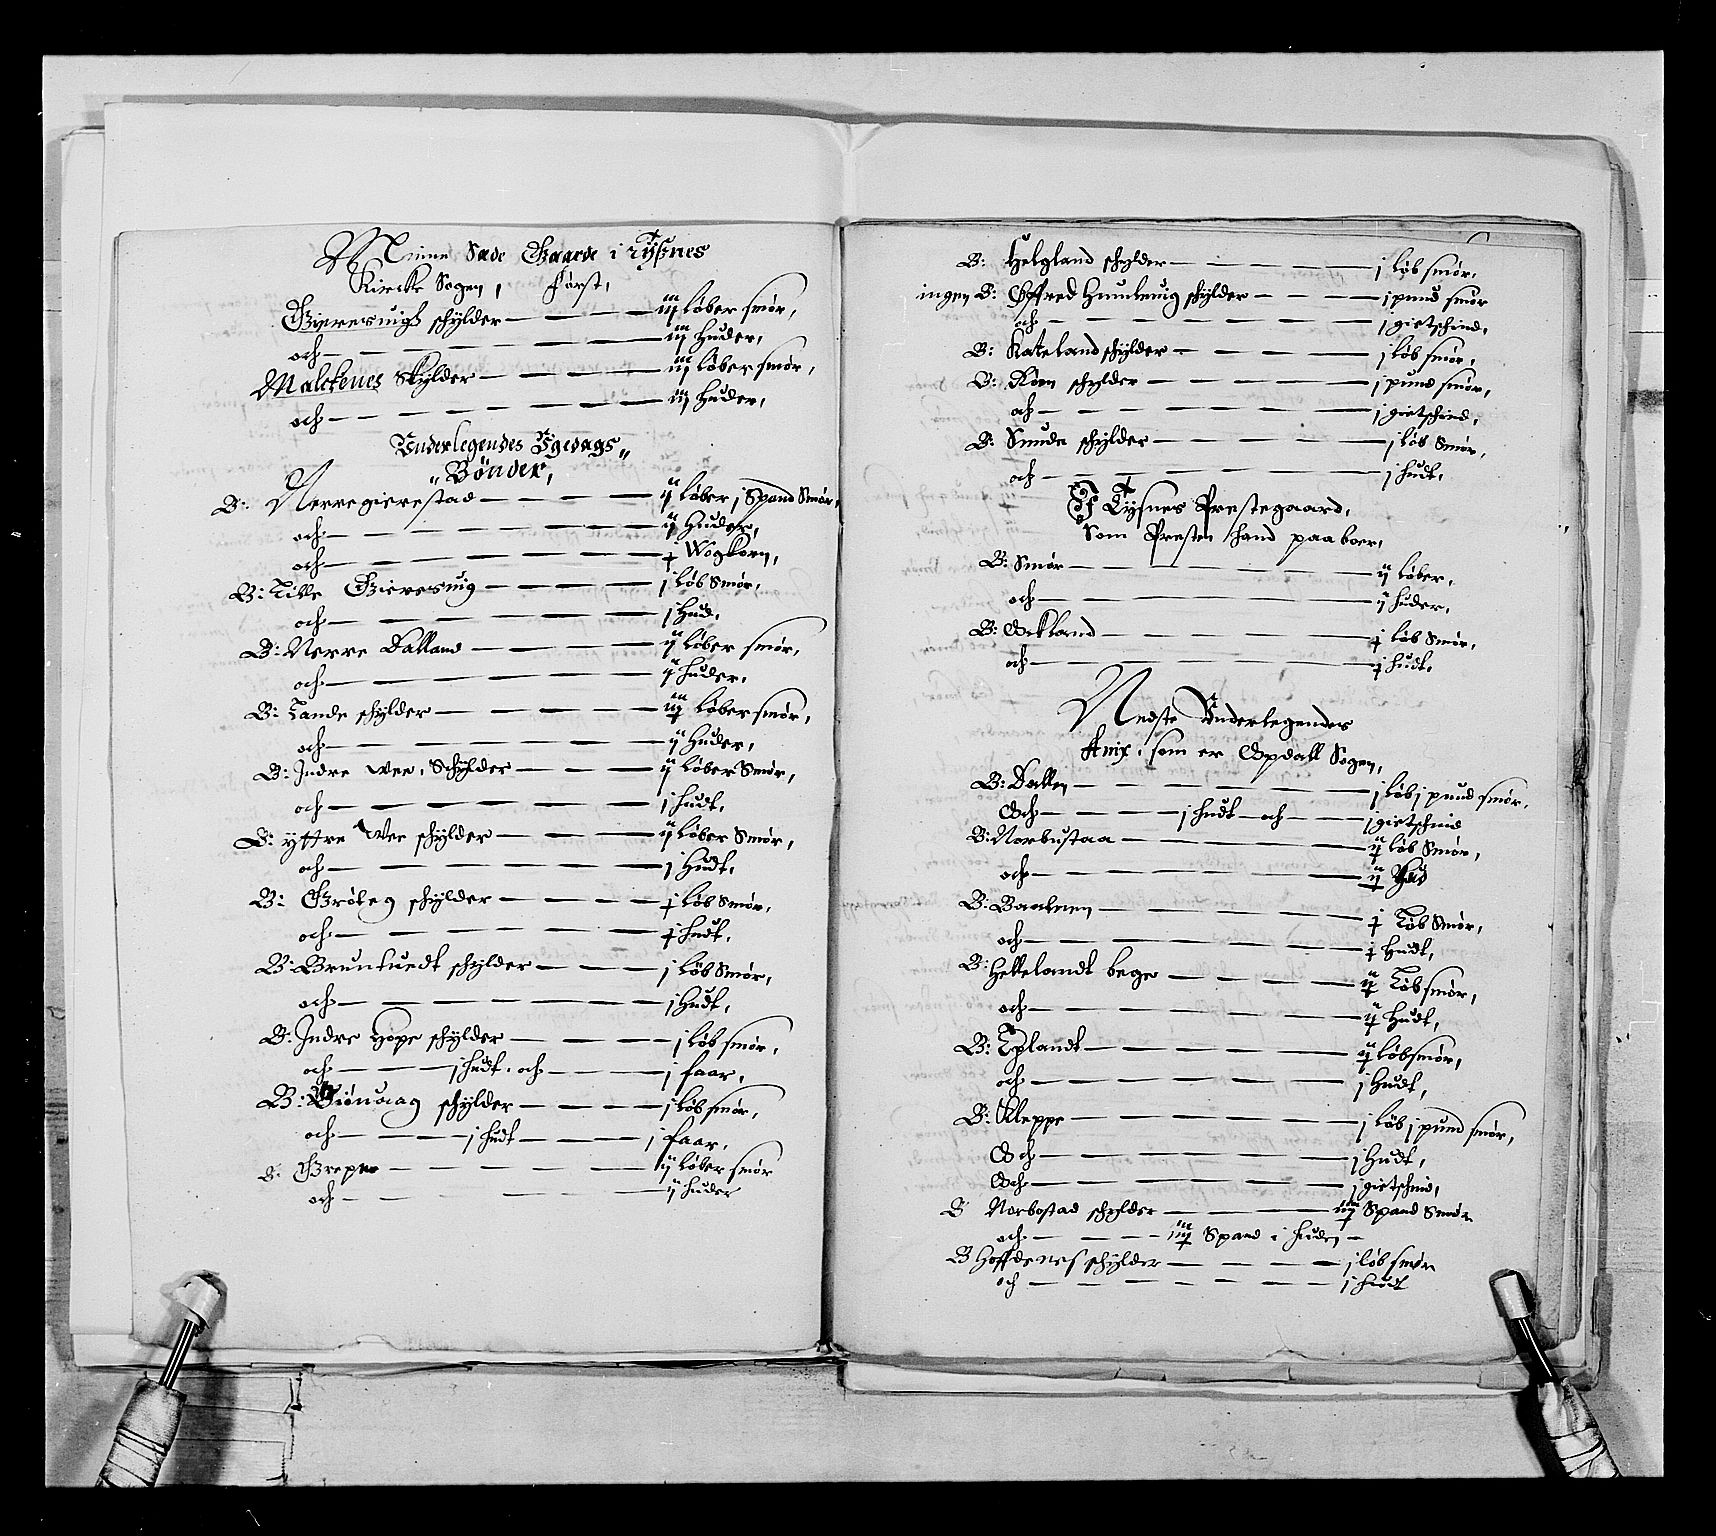 Minne Sæde Gaarde i Tyßnes
Kircke Sogen, Først,
Gieresuigh schylder — — — — iij løber smør,
och — — — — — — — iij Huder,
Malckenes Skylder — — — — iij løber smør,
och — — — — — — — iij Huder,
Vnderlegendes Vgedags
Bønder,
B: Nerregierestad — — — — ij løber j Spand Smør,
och — — — — — — — ij Huder,
och — — — — — — — Wog korn,
B: Lille Gieresuig — — — — j løb Smør,
och — — — — — — — j Hud,
B: Nerre Dalland — — — — ij løber smør,
och — — — — — — — ij huder,
B: Lande schylder — — — — løber smør,
och — — — — — — — ij Huder,
B: Indre Wee, Schylder — — — ij løber Smør,
och — — — — — — — j hudt,
B: yttre Wee schylder — — — ij løber Smør,
och — — — — — — — j Hudt,
B: schylder — — — — løb Smør,
och — — — — — — — hudt,
B: Bruntuedt schylder — — — j løb Smør,
och — — — — — — — j Hudt,
B: Indre Hope schylder — — — j løb smør,
och — — — j hudt, och — — — j faar,
B: schylder — — — — j løb smør,
och — — — j hudt — — — j faar,
B: Grepne — — — — — ij løber smør
och — — — — — — — ij huder
B: Helgland schylder — — — — j løb smør,
ingen B: Øffred schylder — — — j pund smør
och — — — — — — — j gietschind,
B: Kateland schylder — — — — j løb smør,
B: Røen schylder — — — — j pund smør,
och — — — — — — — j gietschind,
B: schylder — — — — j løb Smør,
och — — — — — — — j hudt,
Tysnes Prestegaard,
Som Presten hand paa boer,
B: Smør — — — — — ij løber,
och — — — — — — — ij huder,
B: Øckland — — — — — løb Smør,
och — — — — — — — hudt,
Nedste Vnderlegendes
Anix, som er Opdall Sogen,
B: Dallen — — — — — j løb j pund smør,
Och — — — j hudt och — — j gietschind
B: Norbustaa — — — — — løb Smør,
och — — — — — — — Hud
B: — — — — — Løb Smør,
och — — — — — — — Hudt,
B: Hellelandt bege — — — — Løb smør,
och — — — — — — — Hudt,
B: Vplandt — — — — — løb smør,
och — — — — — — — j Hudt,
B: Kleppe — — — — — j løb j pund smør,
Och — — — — — — — j Hudt,
Och — — — — — — — j gietschind,
B Norbostad schylder — — — Spand Smør
och — — — — Spand i huder —
B Hoffdenes schylder — — — j løb smør
och — — — — — — — j hudt